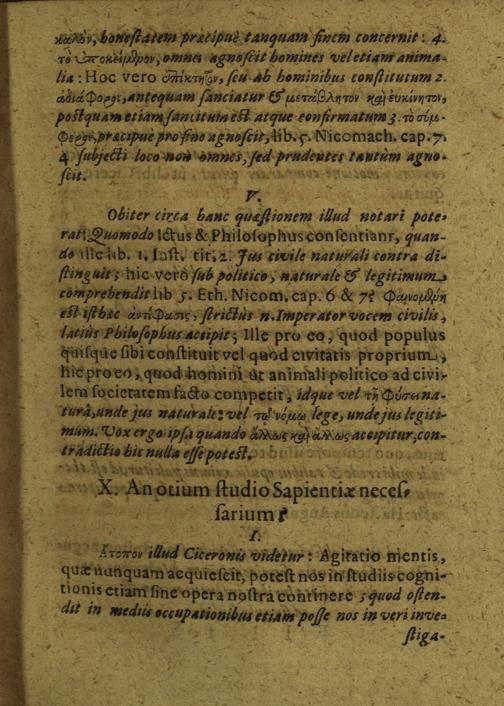 καλὸν, honestatem præcipuè tanquam finem concernit: 4.
τὸ ὑποκείμενον, omnes agnoscit homines vel etiam anima-
lia: Hoc verò ἐπίκτητον, seu ab hominibus constitutum 2.
ἀδιάφορον, antequam sanciatur & μετάβλητον καὶ εὐκίνητον,
postquam etiam sancitum est atque confirmatum 3. τὸ σύμ-
φερον, præcipuè pro fine agnoscit, lib. 5. Nicomach. cap. 7.
4 subjecti loco non omnes, sed prudentes tantùm agno-
scit.
V.
Obiter circa hanc quæstionem illud notari pote-
rat; Quomodo Ictus & Philosophus consentiant, quan-
do ille lib. 1. Inst. tit. 2. Jus civile naturali contra di-
stinguit; hic verò sub politico, naturale & legitimum
comprehendit lib 5. Eth. Nicom. cap. 6 & 7? Φαινομένη
est isthæc ἀντίφασις, strictiùs n. Imperator vocem civilis,
latiùs Philosophus accipit; Ille pro eo, quod populus
quisque sibi constituit vel quod civitatis proprium,
hic pro eo, quod homini ut animali politico ad civi-
lem societatem facto competit, idque vel τῇ φύσει na-
turâ, unde jus naturale: vel τῷ νόμῳ lege, unde jus legiti-
mum. Vox ergo ipsa quando ἄλλως καὶ ἄλλως accipitur, con-
tradictio hic nulla esse potest.
X. An otium studio Sapientiæ neces-
sarium?
I.
Ἄτοπον illud Ciceronis videtur: Agitatio mentis,
quæ nunquam acquiescit, potest nos in studiis cogni-
tionis etiam sine opera nostra continere; quod osten-
dit in mediis occupationibus etiam posse nos in veri inve-
stiga-